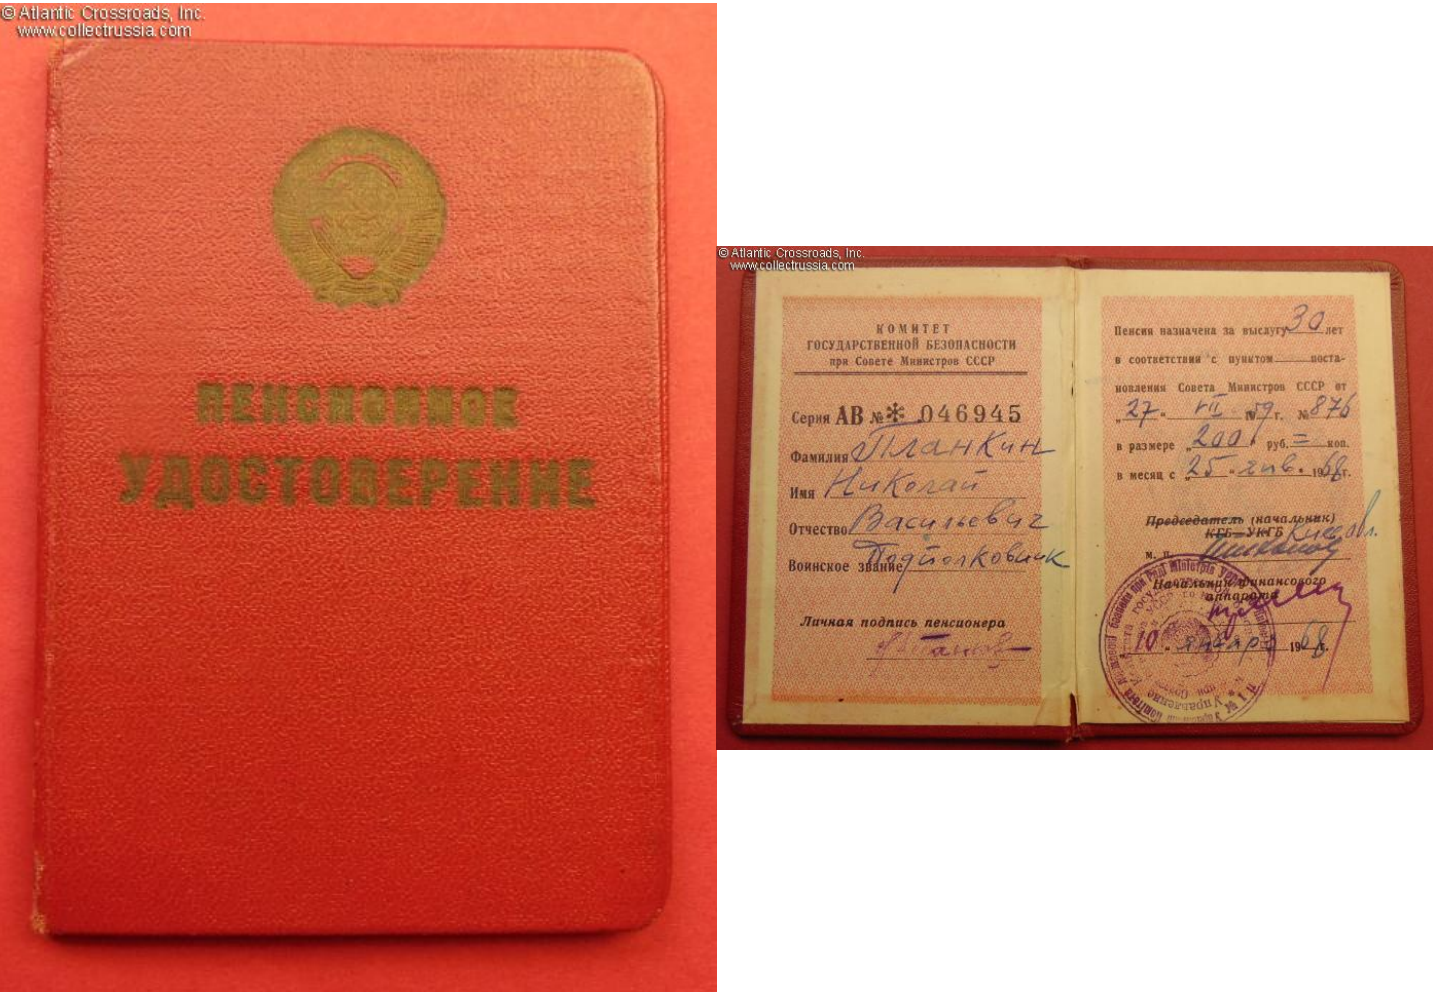 © Atlantic Crossroads, Inc.
www.collectrussia.com
ПЕНСИОННОЕ
УДОСТОВЕРЕНИЕ
© Atlantic Crossroads, Inc.
www.collectrussia.com
КОМИТЕТ
ГОСУДАРСТВЕННОЙ БЕЗОПАСНОСТИ
при Совете Министров СССР
Серия АВ №* 046945
Фамилия Планкин
Имя Николай
Отчество Васильевич
Воинское звание Подполковник
Личная подпись пенсионера
Пенсия назначена за выслугу 30 лет
в соответствии с пунктом поста-
новления Совета Министров СССР от
„27" VII 1959 г. № 876
в размере „200" руб. = коп.
в месяц с „25" янв. 1968 г.
Председатель (начальник)
КГБ—УКГБ
м. п.
Начальник финансового
аппарата
„10" января 1968 г.